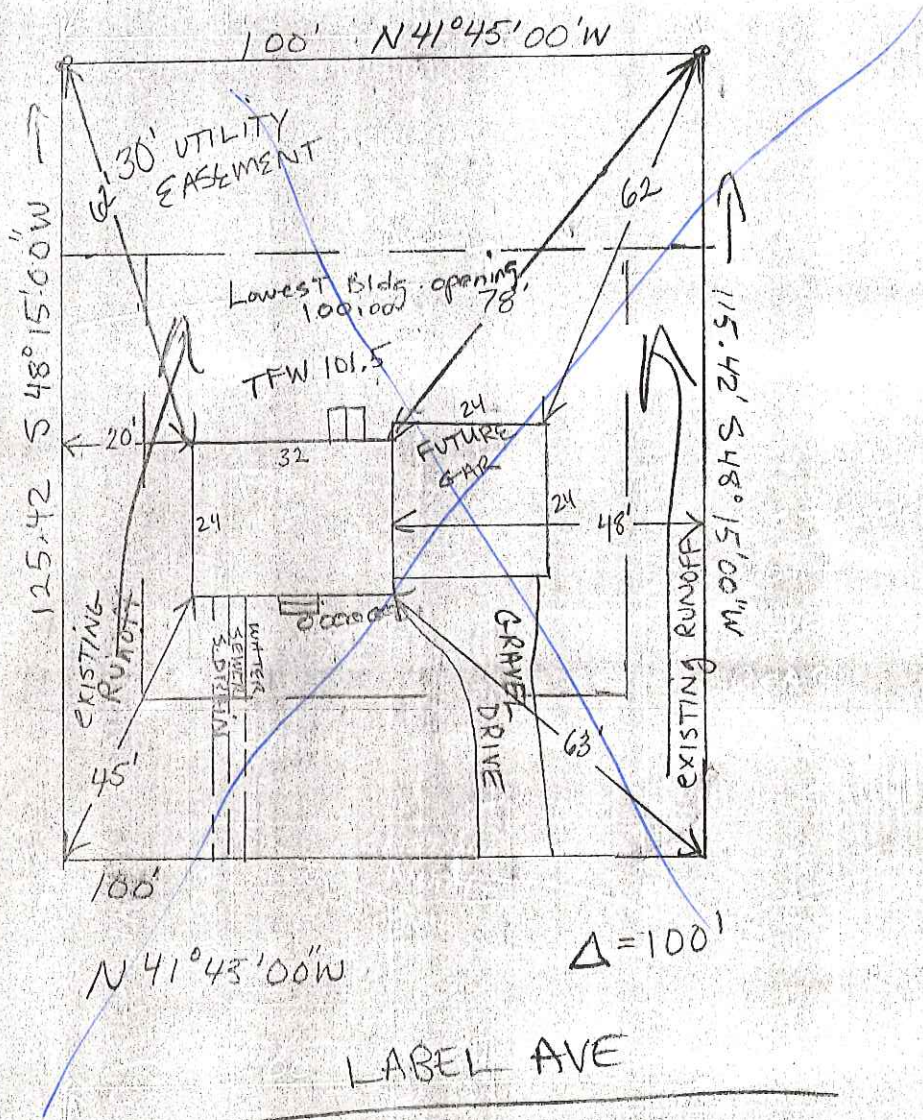 100' N 41°45'00"W
30' UTILITY
EASEMENT
62'
62
125.42 S 48°15'00"W
115.42' S 48°15'00"W
Lowest Bldg. opening
100.00
78'
TFW 101.5
20'
32
24
FUTURE
GAR
24
24
48'
existing
Runoff
existing RUNOFF
WATER
SEWER
S.DRAIN
GRAVEL
DRIVE
45'
63'
100'
N 41°45'00"W
Δ=100'
LABEL AVE